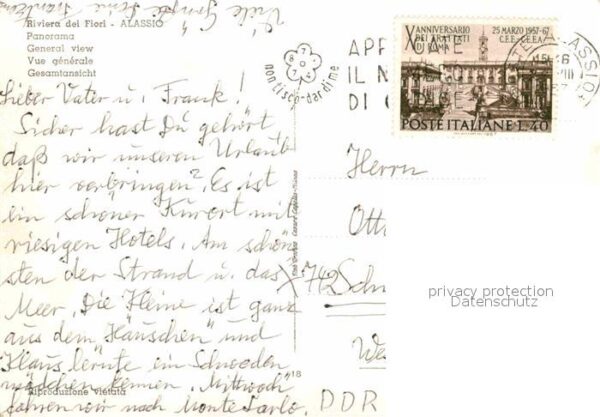 Riviera dei Fiori - ALASSIO
Panorama
General view
Vue générale
Gesamtansicht
Viele
Lieber Vater u. Frank!
Sicher hast Du gehört
daß wir unseren Urlaub
hier verbringen? Es ist
ein schöner Kurort mit
riesigen Hotels. Am schön
sten der Strand u. das
Meer. Die Kleine ist ganz
aus dem Häuschen und
Klaus lernte ein Schweden
mädchen kennen. Mittwoch
fahren wir nach Monte Carlo.
Riproduzione vietata
18
non ti scordar di me
IL
DI
X ANNIVERSARIO
DEI TRATTATI
DI ROMA
25 MARZO 1957-67
C.E.E.-C.E.E.A.
POSTE ITALIANE L. 40
ALASSIO
Herrn
Otto
X 742 Schm
DDR
privacy protection
Datenschutz